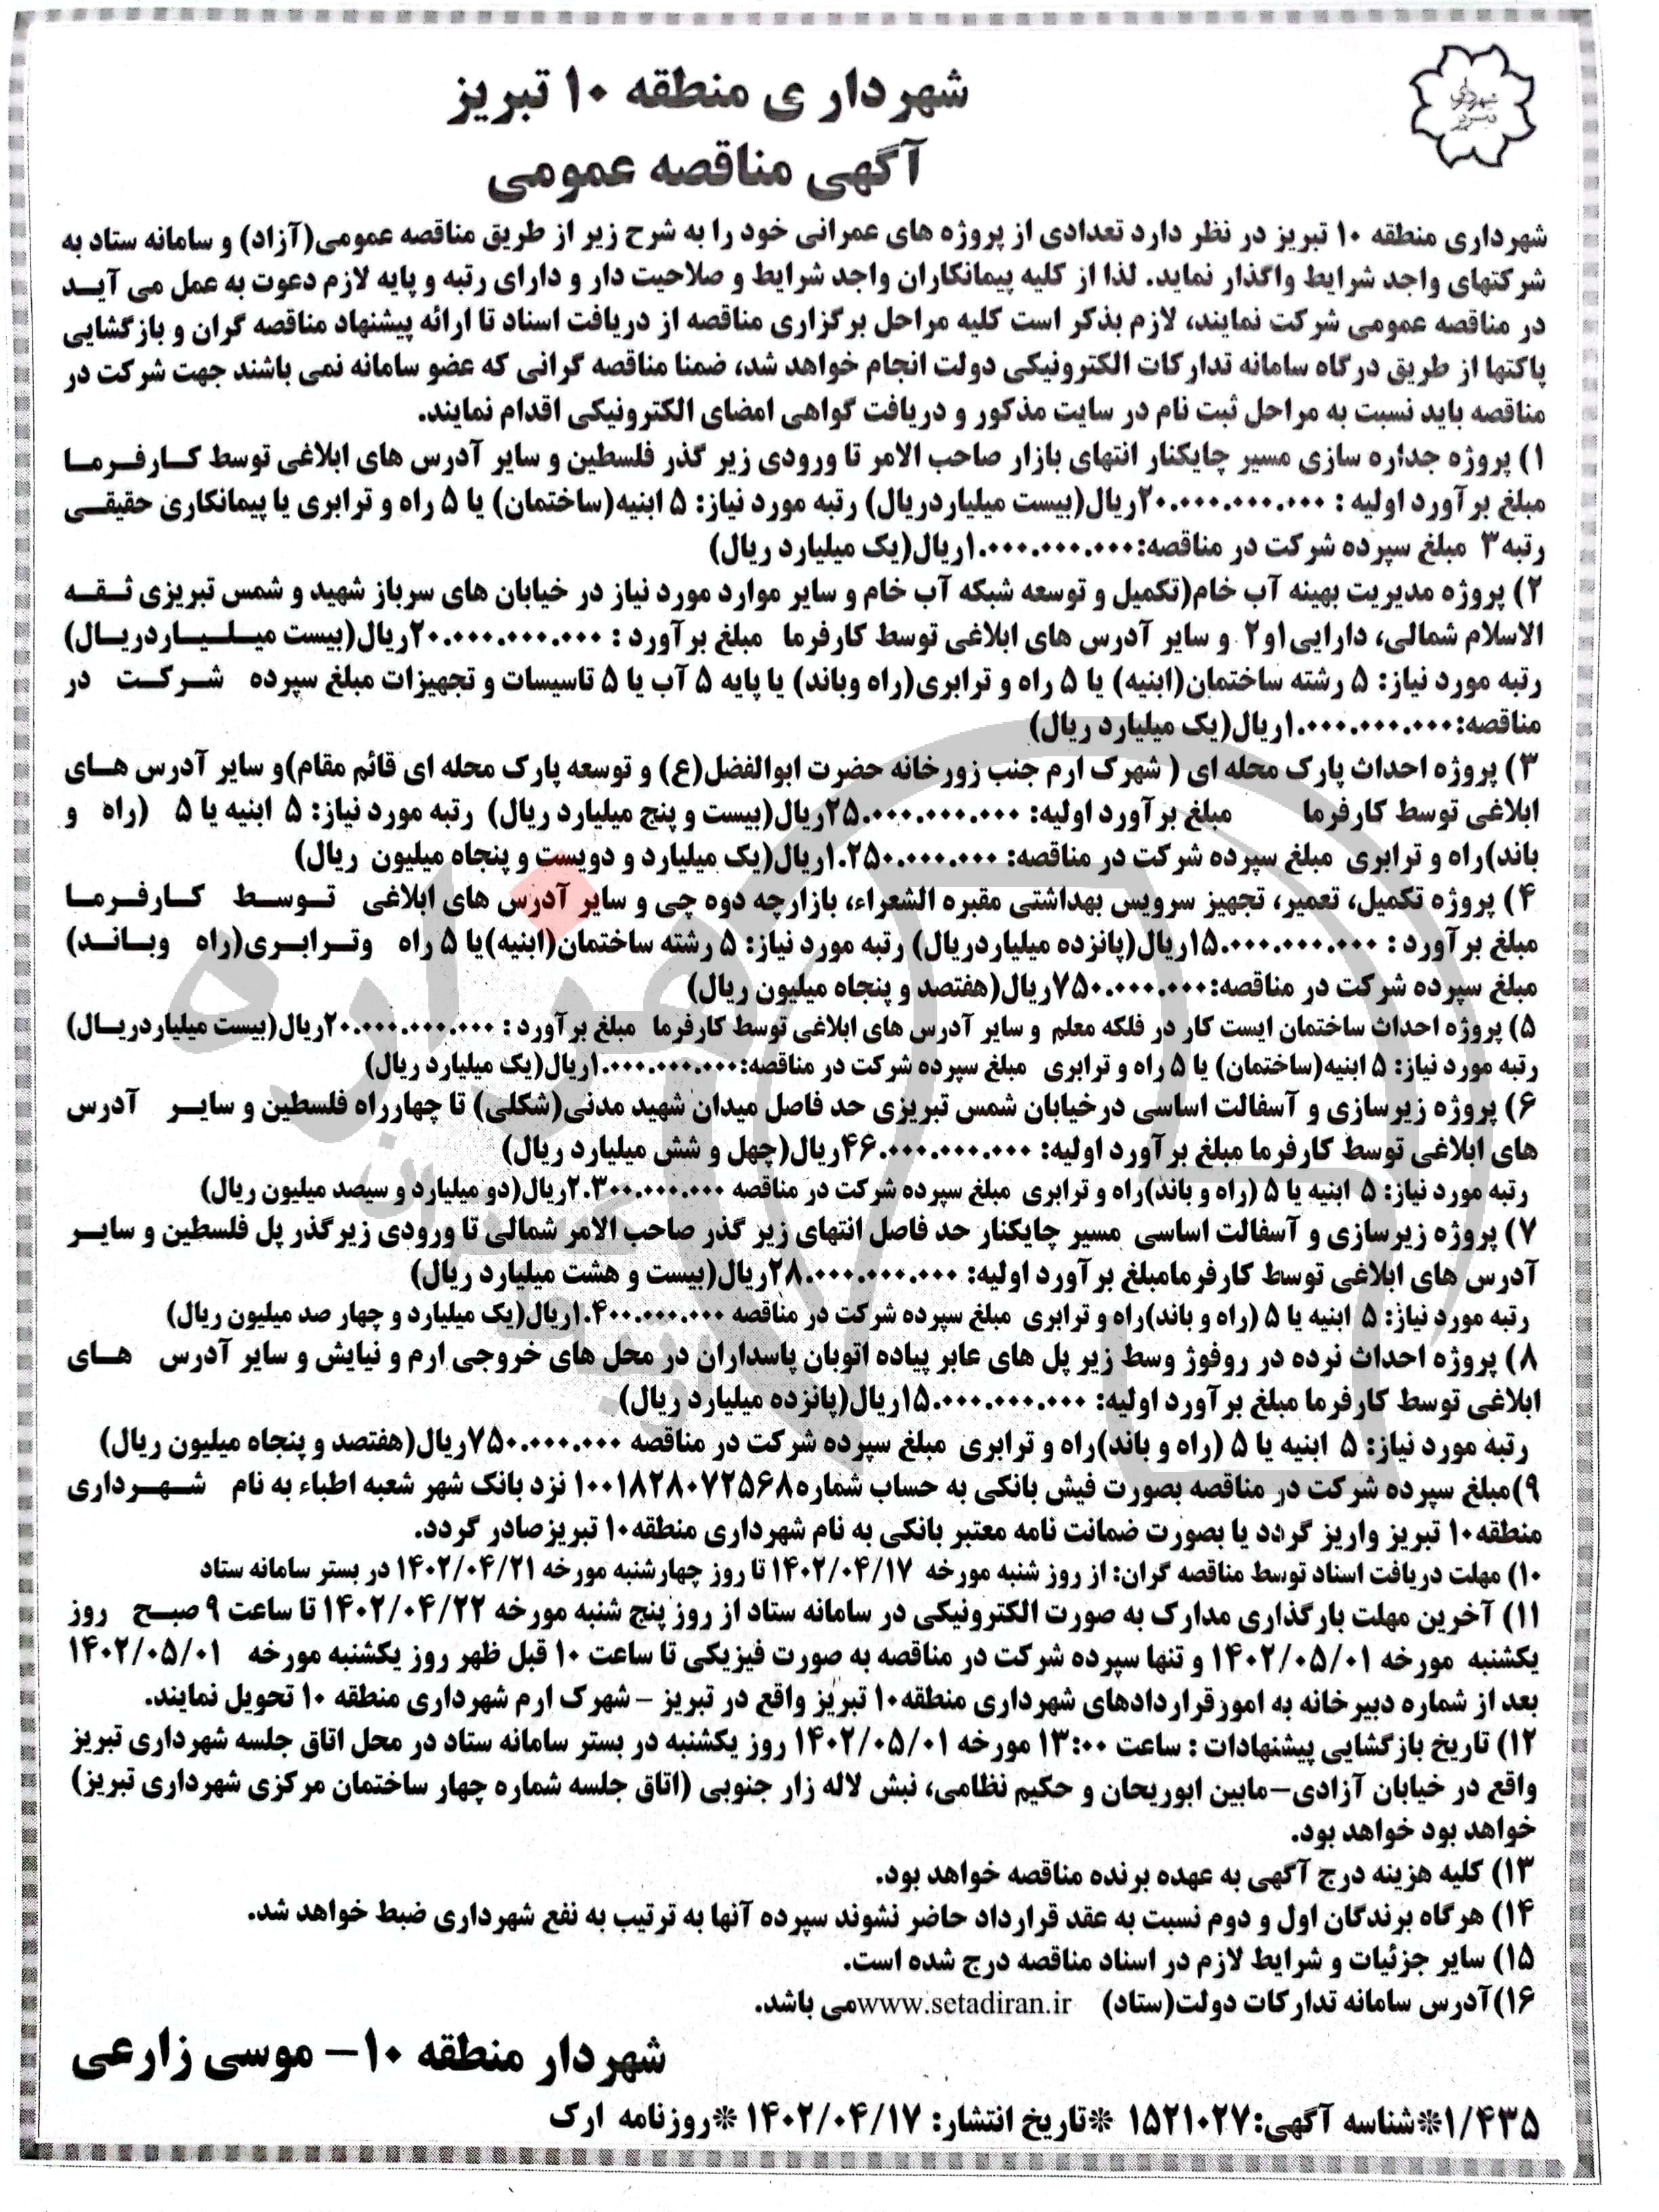 شهرداری تبریز
شهرداری منطقه ۱۰ تبریز
آگهی مناقصه عمومی
شهرداری منطقه ۱۰ تبریز در نظر دارد تعدادی از پروژه های عمرانی خود را به شرح زیر از طریق مناقصه عمومی(آزاد) و سامانه ستاد به
شرکتهای واجد شرایط واگذار نماید. لذا از کلیه پیمانکاران واجد شرایط و صلاحیت دار و دارای رتبه و پایه لازم دعوت به عمل می آید
در مناقصه عمومی شرکت نمایند، لازم بذکر است کلیه مراحل برگزاری مناقصه از دریافت اسناد تا ارائه پیشنهاد مناقصه گران و بازگشایی
پاکتها از طریق درگاه سامانه تدارکات الکترونیکی دولت انجام خواهد شد، ضمنا مناقصه گرانی که عضو سامانه نمی باشند جهت شرکت در
مناقصه باید نسبت به مراحل ثبت نام در سایت مذکور و دریافت گواهی امضای الکترونیکی اقدام نمایند.
۱) پروژه جداره سازی مسیر چایکنار انتهای بازار صاحب الامر تا ورودی زیر گذر فلسطین و سایر آدرس های ابلاغی توسط کارفرما
مبلغ برآورد اولیه : ۲۰.۰۰۰.۰۰۰.۰۰۰ریال(بیست میلیاردریال) رتبه مورد نیاز: ۵ ابنیه(ساختمان) یا ۵ راه و ترابری یا پیمانکاری حقیقی
رتبه ۳ مبلغ سپرده شرکت در مناقصه:۱.۰۰۰.۰۰۰.۰۰۰ریال(یک میلیارد ریال)
۲) پروژه مدیریت بهینه آب خام(تکمیل و توسعه شبکه آب خام و سایر موارد مورد نیاز در خیابان های سرباز شهید و شمس تبریزی ثقه
الاسلام شمالی، دارایی۱و۲ و سایر آدرس های ابلاغی توسط کارفرما مبلغ برآورد : ۲۰.۰۰۰.۰۰۰.۰۰۰ریال(بیست میلیاردریال)
رتبه مورد نیاز: ۵ رشته ساختمان(ابنیه) یا ۵ راه و ترابری(راه وباند) یا پایه ۵ آب یا ۵ تاسیسات و تجهیزات مبلغ سپرده شرکت در
مناقصه:۱.۰۰۰.۰۰۰.۰۰۰ریال(یک میلیارد ریال)
۳) پروژه احداث پارک محله ای ( شهرک ارم جنب زورخانه حضرت ابوالفضل(ع) و توسعه پارک محله ای قائم مقام)و سایر آدرس های
ابلاغی توسط کارفرما مبلغ برآورد اولیه: ۲۵.۰۰۰.۰۰۰.۰۰۰ریال(بیست و پنج میلیارد ریال) رتبه مورد نیاز: ۵ ابنیه یا ۵ (راه و
باند)راه و ترابری مبلغ سپرده شرکت در مناقصه: ۱.۲۵۰.۰۰۰.۰۰۰ریال(یک میلیارد و دویست و پنجاه میلیون ریال)
۴) پروژه تکمیل، تعمیر، تجهیز سرویس بهداشتی مقبره الشعراء، بازارچه دوه چی و سایر آدرس های ابلاغی توسط کارفرما
مبلغ برآورد : ۱۵.۰۰۰.۰۰۰.۰۰۰ریال(پانزده میلیاردریال) رتبه مورد نیاز: ۵ رشته ساختمان(ابنیه)یا ۵ راه وترابری(راه وباند)
مبلغ سپرده شرکت در مناقصه:۷۵۰.۰۰۰.۰۰۰ریال(هفتصد و پنجاه میلیون ریال)
۵) پروژه احداث ساختمان ایست کار در فلکه معلم و سایر آدرس های ابلاغی توسط کارفرما مبلغ برآورد : ۲۰.۰۰۰.۰۰۰.۰۰۰ریال(بیست میلیاردریال)
رتبه مورد نیاز: ۵ ابنیه(ساختمان) یا ۵ راه و ترابری مبلغ سپرده شرکت در مناقصه:۱.۰۰۰.۰۰۰.۰۰۰ریال(یک میلیارد ریال)
۶) پروژه زیرسازی و آسفالت اساسی درخیابان شمس تبریزی حد فاصل میدان شهید مدنی(شکلی) تا چهارراه فلسطین و سایر آدرس
های ابلاغی توسط کارفرما مبلغ برآورد اولیه: ۴۶.۰۰۰.۰۰۰.۰۰۰ریال(چهل و شش میلیارد ریال)
رتبه مورد نیاز: ۵ ابنیه یا ۵ (راه و باند)راه و ترابری مبلغ سپرده شرکت در مناقصه ۲.۳۰۰.۰۰۰.۰۰۰ریال(دو میلیارد و سیصد میلیون ریال)
۷) پروژه زیرسازی و آسفالت اساسی مسیر چایکنار حد فاصل انتهای زیر گذر صاحب الامر شمالی تا ورودی زیرگذر پل فلسطین و سایر
آدرس های ابلاغی توسط کارفرمامبلغ برآورد اولیه: ۲۸.۰۰۰.۰۰۰.۰۰۰ریال(بیست و هشت میلیارد ریال)
رتبه مورد نیاز: ۵ ابنیه یا ۵ (راه و باند)راه و ترابری مبلغ سپرده شرکت در مناقصه ۱.۴۰۰.۰۰۰.۰۰۰ریال(یک میلیارد و چهار صد میلیون ریال)
۸) پروژه احداث نرده در روفوژ وسط زیر پل های عابر پیاده اتوبان پاسداران در محل های خروجی ارم و نیایش و سایر آدرس های
ابلاغی توسط کارفرما مبلغ برآورد اولیه: ۱۵.۰۰۰.۰۰۰.۰۰۰ریال(پانزده میلیارد ریال)
رتبه مورد نیاز: ۵ ابنیه یا ۵ (راه و باند)راه و ترابری مبلغ سپرده شرکت در مناقصه ۷۵۰.۰۰۰.۰۰۰ریال(هفتصد و پنجاه میلیون ریال)
۹)مبلغ سپرده شرکت در مناقصه بصورت فیش بانکی به حساب شماره۱۰۰۱۸۲۸۰۷۲۵۶۸ نزد بانک شهر شعبه اطباء به نام شهرداری
منطقه۱۰ تبریز واریز گردد یا بصورت ضمانت نامه معتبر بانکی به نام شهرداری منطقه۱۰ تبریزصادر گردد.
۱۰) مهلت دریافت اسناد توسط مناقصه گران: از روز شنبه مورخه ۱۴۰۲/۰۴/۱۷ تا روز چهارشنبه مورخه ۱۴۰۲/۰۴/۲۱ در بستر سامانه ستاد
۱۱) آخرین مهلت بارگذاری مدارک به صورت الکترونیکی در سامانه ستاد از روز پنج شنبه مورخه ۱۴۰۲/۰۴/۲۲ تا ساعت ۹ صبح روز
یکشنبه مورخه ۱۴۰۲/۰۵/۰۱ و تنها سپرده شرکت در مناقصه به صورت فیزیکی تا ساعت ۱۰ قبل ظهر روز یکشنبه مورخه ۱۴۰۲/۰۵/۰۱
بعد از شماره دبیرخانه به امورقراردادهای شهرداری منطقه۱۰ تبریز واقع در تبریز – شهرک ارم شهرداری منطقه ۱۰ تحویل نمایند.
۱۲) تاریخ بازگشایی پیشنهادات : ساعت ۱۳:۰۰ مورخه ۱۴۰۲/۰۵/۰۱ روز یکشنبه در بستر سامانه ستاد در محل اتاق جلسه شهرداری تبریز
واقع در خیابان آزادی–مابین ابوریحان و حکیم نظامی، نبش لاله زار جنوبی (اتاق جلسه شماره چهار ساختمان مرکزی شهرداری تبریز)
خواهد بود خواهد بود.
۱۳) کلیه هزینه درج آگهی به عهده برنده مناقصه خواهد بود.
۱۴) هرگاه برندگان اول و دوم نسبت به عقد قرارداد حاضر نشوند سپرده آنها به ترتیب به نفع شهرداری ضبط خواهد شد.
۱۵) سایر جزئیات و شرایط لازم در اسناد مناقصه درج شده است.
۱۶)آدرس سامانه تدارکات دولت(ستاد) www.setadiran.irمی باشد.
شهردار منطقه ۱۰– موسی زارعی
۱/۴۳۵*شناسه آگهی:۱۵۲۱۰۲۷ *تاریخ انتشار: ۱۴۰۲/۰۴/۱۷ *روزنامه ارک